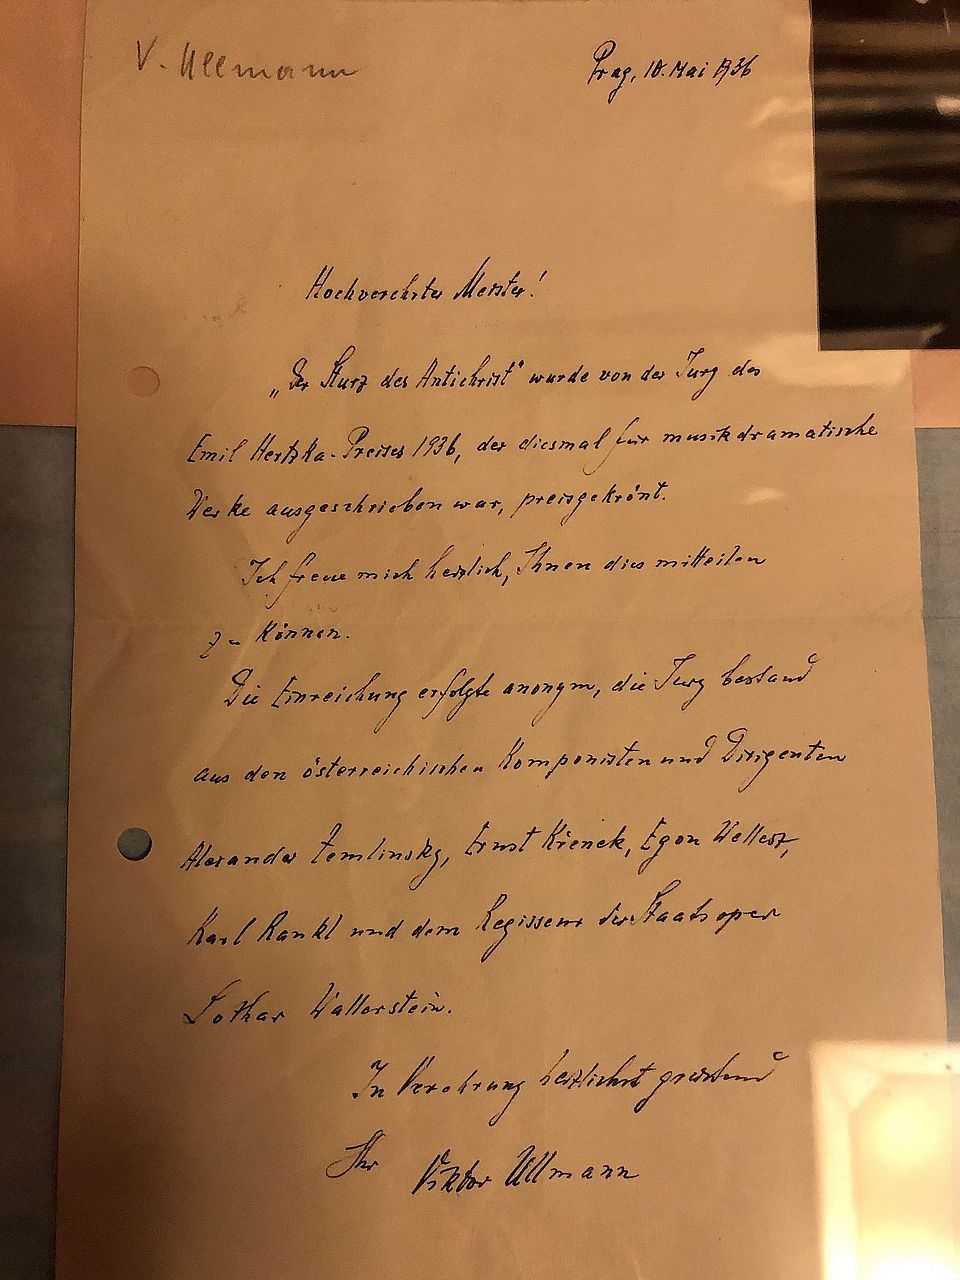 V. Ullmann
Prag, 10. Mai 1936
Hochverehrter Meister!
„Der Sturz des Antichrist" wurde von der Jury des
Emil Hertzka-Preises 1936, der diesmal für musikdramatische
Werke ausgeschrieben war, preisgekrönt.
Ich freue mich herzlich, Ihnen dies mitteilen
zu können.
Die Einreichung erfolgte anonym, die Jury bestand
aus den österreichischen Komponisten und Dirigenten
Alexander Zemlinsky, Ernst Krenek, Egon Wellesz,
Karl Rankl und dem Regisseur der Staatsoper
Lothar Wallerstein.
In Verehrung herzlichst grüssend
Ihr Viktor Ullmann